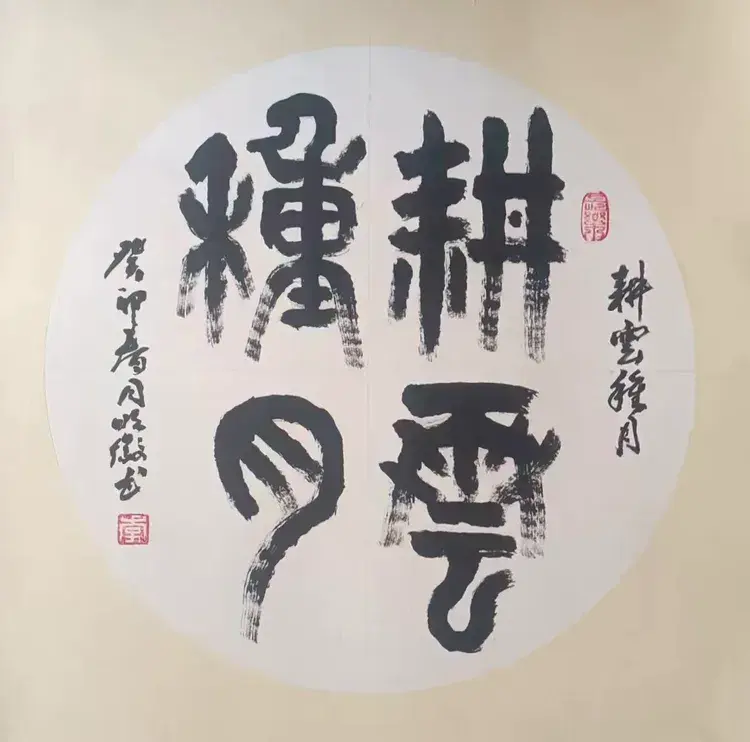 耕雲
種月
耕雲種月
癸卯春月 书